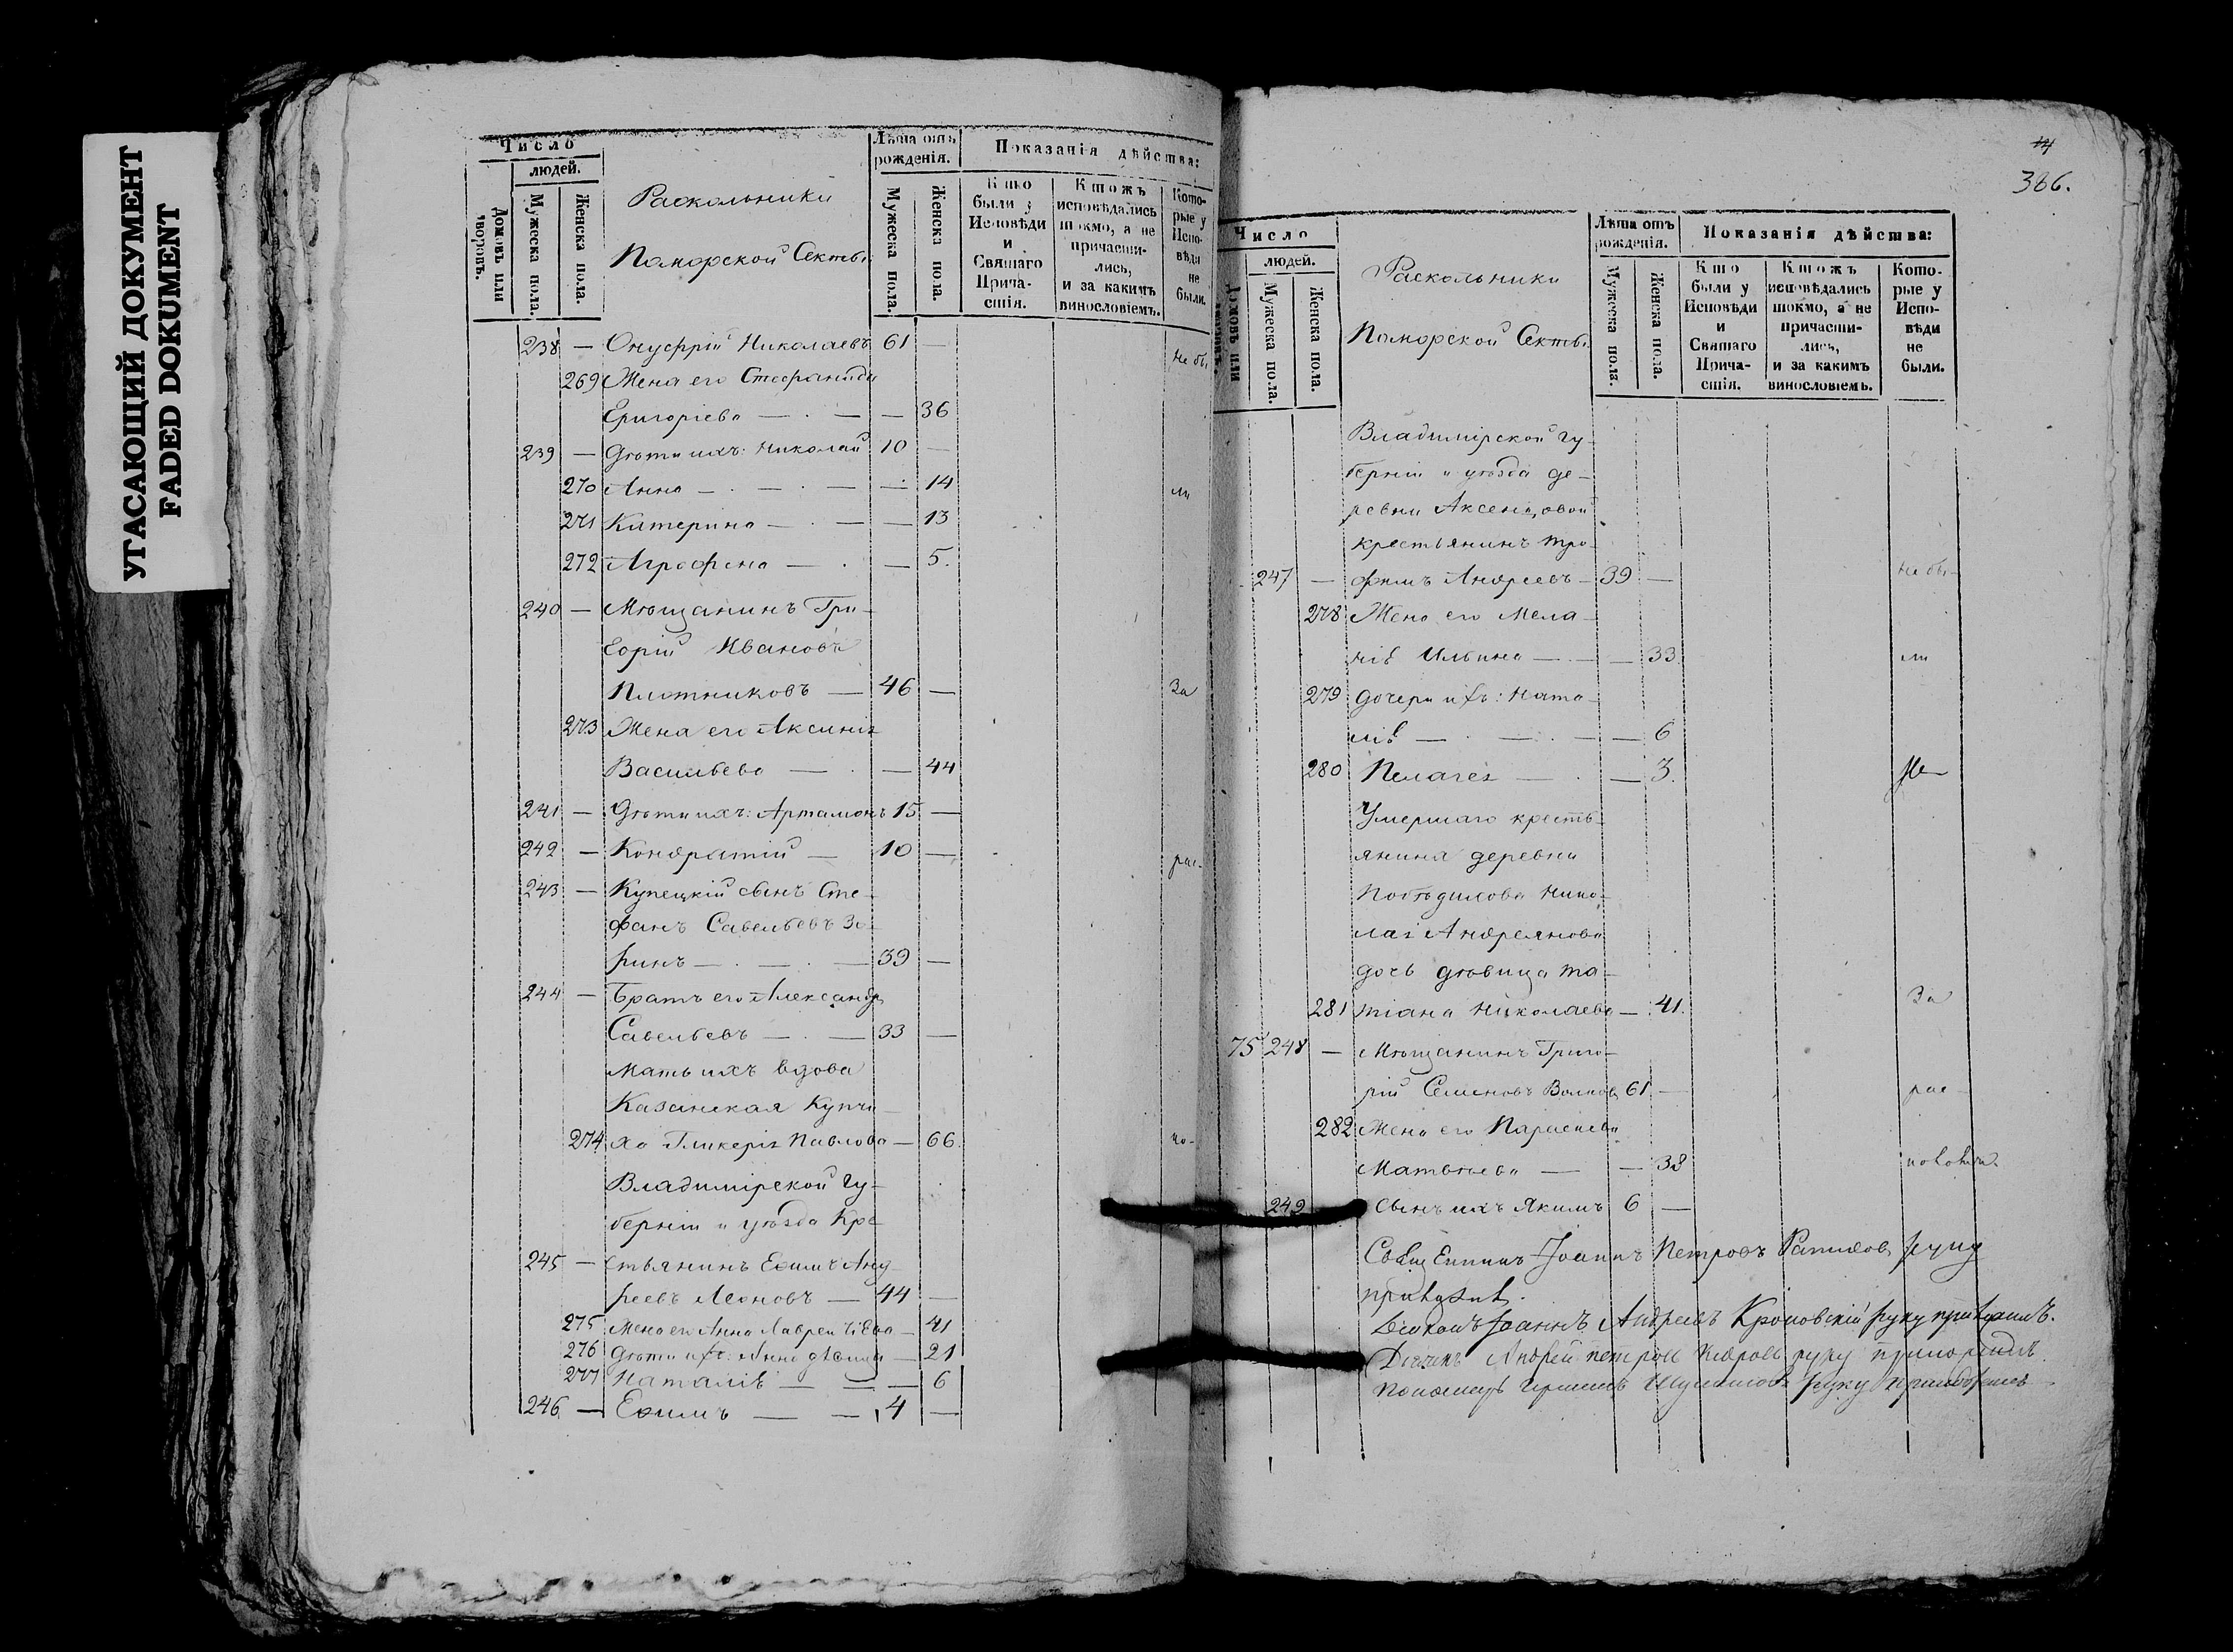 УГАСАЮЩИЙ ДОКУМЕНТ
FADED DOKUMENT
Число
людей.
Домовъ или дворовъ.
Мужеска пола.
Женска пола.
Раскольники
Поморской Секты.
Лѣта отъ рожденія.
Мужеска пола.
Женска пола.
Показанія дѣйства:
Кто были у Исповѣди и Святаго Причастія.
Ктожъ исповѣдались токмо, а не причастились, и за какимъ винословіемъ.
Которые у Исповѣди не были.
238 — Онуфрій Николаевъ 61 —
не бы
269 Жена его Стефанида
Григоріева — . — — 36
239 — Дѣти ихъ: Николай 10 —
270 Анна — . — . — — 14
ли
271 Катерина — . — — 13
272 Аграфена — . — 5.
240 — Мѣщанинъ Гри-
горій Ивановъ
Плотниковъ — 46 —
за
273 Жена его Аксинія
Васильева — . — 44
241 — Дѣти ихъ: Артамонъ 15 —
242 — Кондратій — 10 —
рас-
243 — Купецкій сынъ Сте-
фанъ Савельевъ Зо-
ринъ — . — . — 39 —
244 — Братъ его Александръ
Савельевъ — . — 33 —
Мать ихъ вдова
Казанская Купчи-
274 ха Гликерія Павлова — 66.
ко-
Владимірской Гу-
берніи и уѣзда Кре-
245 — стьянинъ Ефимъ Анд-
реевъ Леоновъ — 44 —
275 Жена его Анна Лаврентіева — 41
276 Дѣти ихъ: Анна дѣвица — 21
277 Наталія — — — 6
246 — Ефимъ — — 4 —
366.
Число
людей.
Домовъ или дворовъ.
Мужеска пола.
Женска пола.
Раскольники
Поморской Секты.
Лѣта отъ рожденія.
Мужеска пола.
Женска пола.
Показанія дѣйства:
Кто были у Исповѣди и Святаго Причастія.
Ктожъ исповѣдались токмо, а не причастились, и за какимъ винословіемъ.
Которые у Исповѣди не были.
Владимірской Гу-
берніи и уѣзда де-
ревни Аксеновой
крестьянинъ Тро-
247 — фимъ Андреевъ — 39 —
не бы-
278 Жена его Мела-
нія Ильина — . — — 33.
ли
279 Дочери ихъ: Ната-
лія — . — . — — 6
280 Пелагея — . — 3.
Умершаго кресть-
янина деревни
Нико-
лая Андреянова
дочь дѣвица Та-
281 тіана Николаева — 41.
за
75 248 — Мѣщанинъ Григо-
рій Семеновъ Волковъ 61 —
рас-
282 Жена его Параскева
Матвѣева — — 38
249 Сынъ ихъ Якимъ 6 —
Священникъ Іоаннъ Петровъ руку
приложилъ.
Діаконъ Іоаннъ Андреевъ руку приложилъ.
Дьячекъ Андрей Петровъ руку приложилъ
Пономарь руку приложилъ